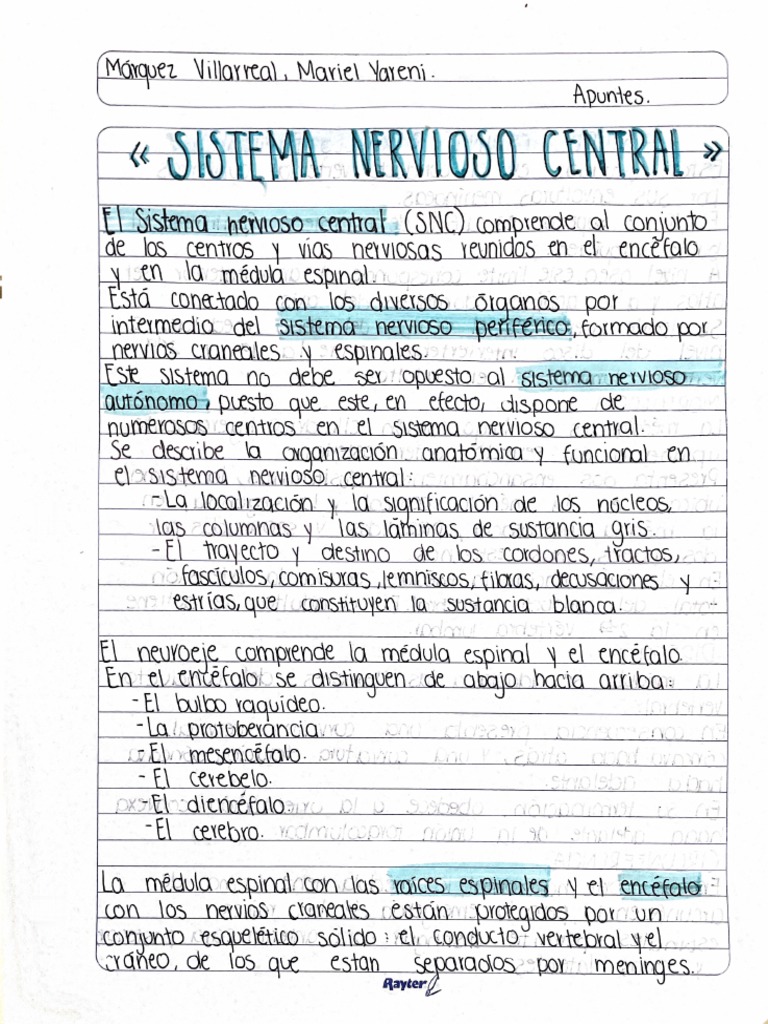 Márquez Villarreal, Mariel Yareni.
Apuntes.
« SISTEMA NERVIOSO CENTRAL »
El Sistema nervioso central (SNC) comprende al conjunto
de los centros y vías nerviosas reunidos en el encéfalo
y en la médula espinal.
Está conectado con los diversos órganos por
intermedio del sistema nervioso periférico, formado por
nervios craneales y espinales.
Este sistema no debe ser opuesto al sistema nervioso
autónomo, puesto que este, en efecto, dispone de
numerosos centros en el sistema nervioso central.
Se describe la organización anatómica y funcional en
el sistema nervioso central:
- La localización y la significación de los núcleos,
las columnas y las láminas de sustancia gris.
- El trayecto y destino de los cordones, tractos,
fascículos, comisuras, lemniscos, fibras, decusaciones y
estrías, que constituyen la sustancia blanca.
El neuroeje comprende la médula espinal y el encéfalo.
En el encéfalo se distinguen de abajo hacia arriba:
- El bulbo raquídeo.
- La protoberancia.
- El mesencéfalo.
- El cerebelo.
- El diencéfalo.
- El cerebro.
La médula espinal con las raíces espinales y el encéfalo
con los nervios craneales están protegidos por un
conjunto esquelético sólido: el conducto vertebral y el
cráneo, de los que están separados por meninges.
Rayter